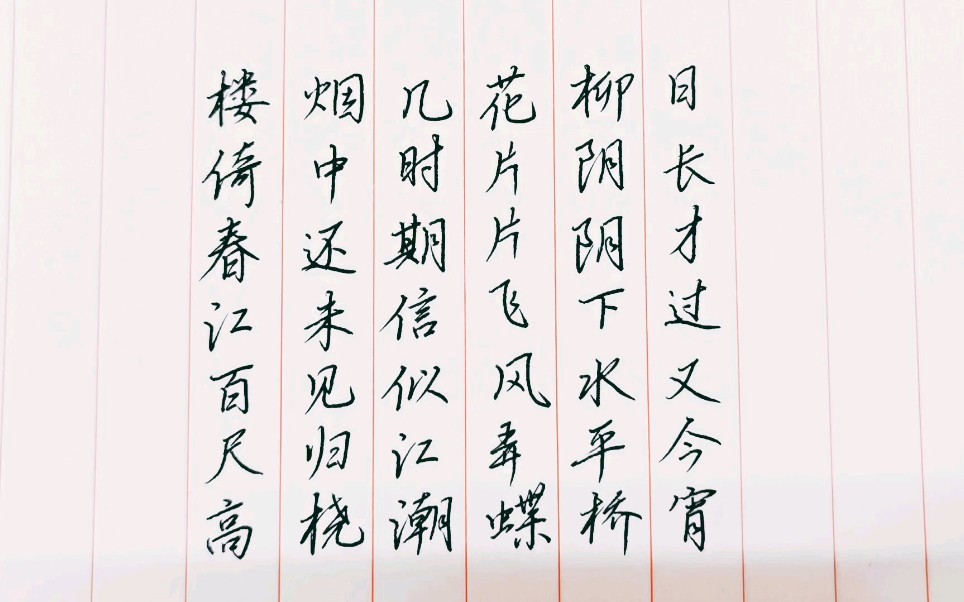 楼倚春江百尺高
烟中还未见归桡
几时期信似江潮
花片片飞风弄蝶
柳阴阴下水平桥
日长才过又今宵